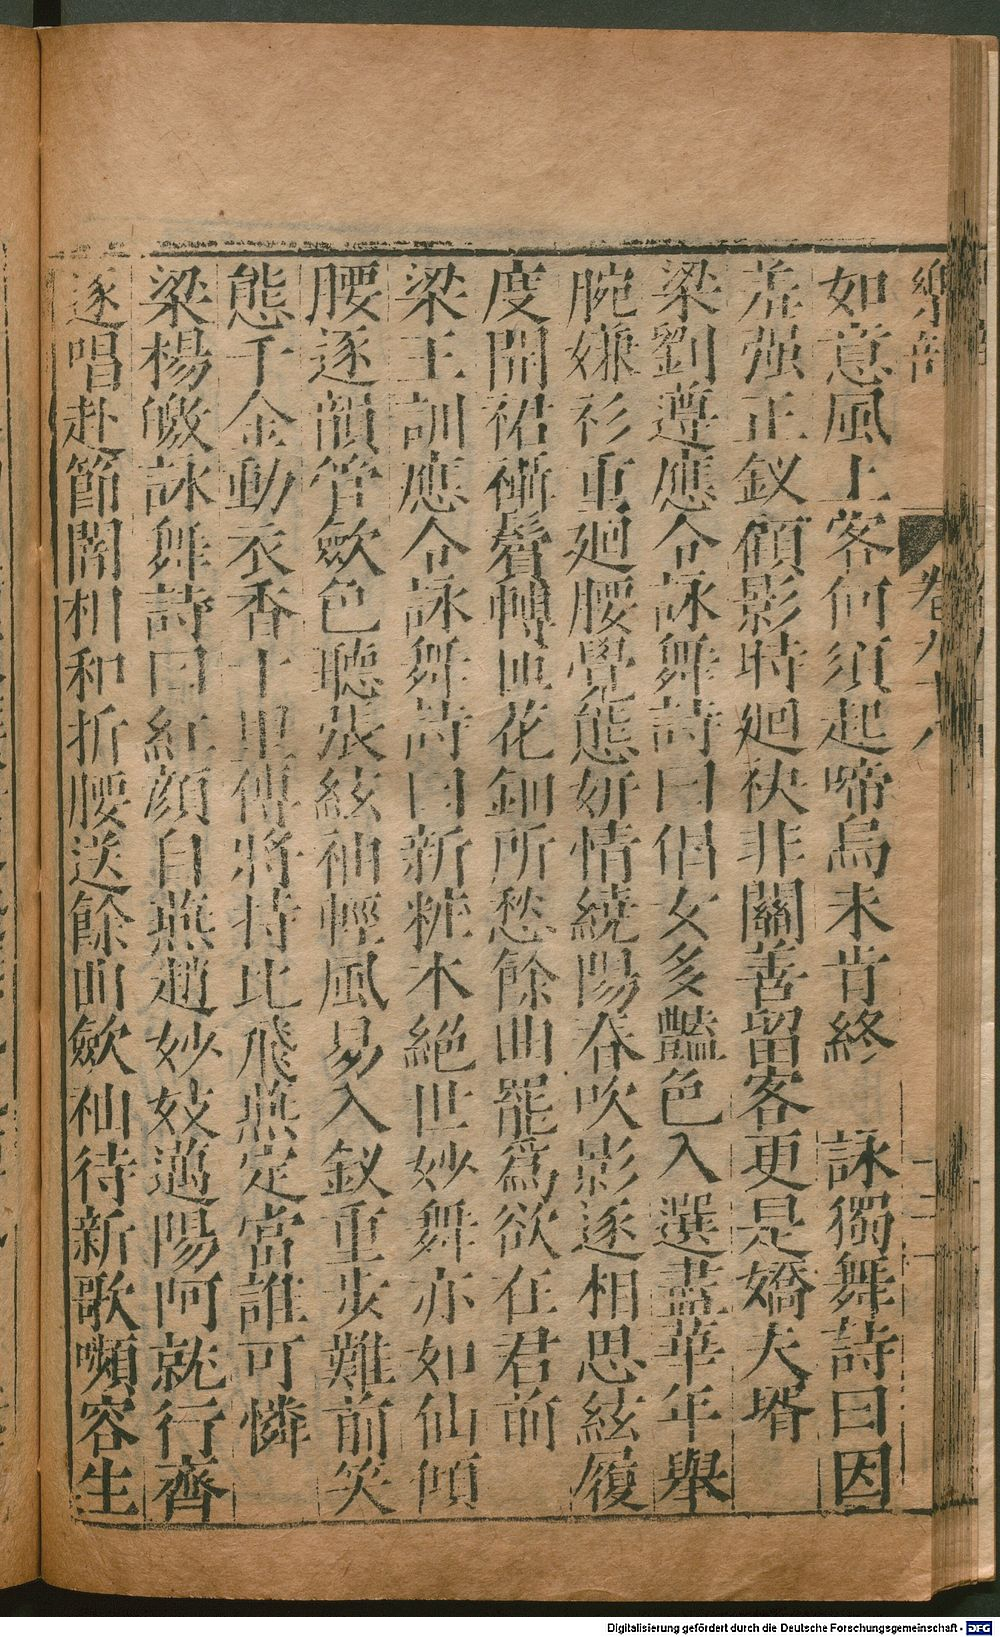 樂部 卷九十八
如意風上客何須起啼烏未肯終 詠獨舞詩曰因
羞强正釵顧影時廻袂非關善留客更是嬌夫壻
梁劉遵應令詠舞詩曰倡女多豔色入選盡華年舉
腕嫌衫重廻腰覺態妍情繞陽春吹影逐相思絃履
度開裙襵鬟轉匝花鈿所愁餘曲罷爲欲在君前
梁王訓應令詠舞詩曰新粧本絕世妙舞亦如仙傾
腰逐韻管斂色聽張絃袖輕風易入釵重步難前笑
態千金動衣香十里傳將持比飛燕定當誰可憐
梁楊皦詠舞詩曰紅顏自燕趙妙妓邁陽阿就行齊
逐唱赴節闇相和折腰送餘曲斂袖待新歌嚬容生
Digitalisierung gefördert durch die Deutsche Forschungsgemeinschaft - DFG